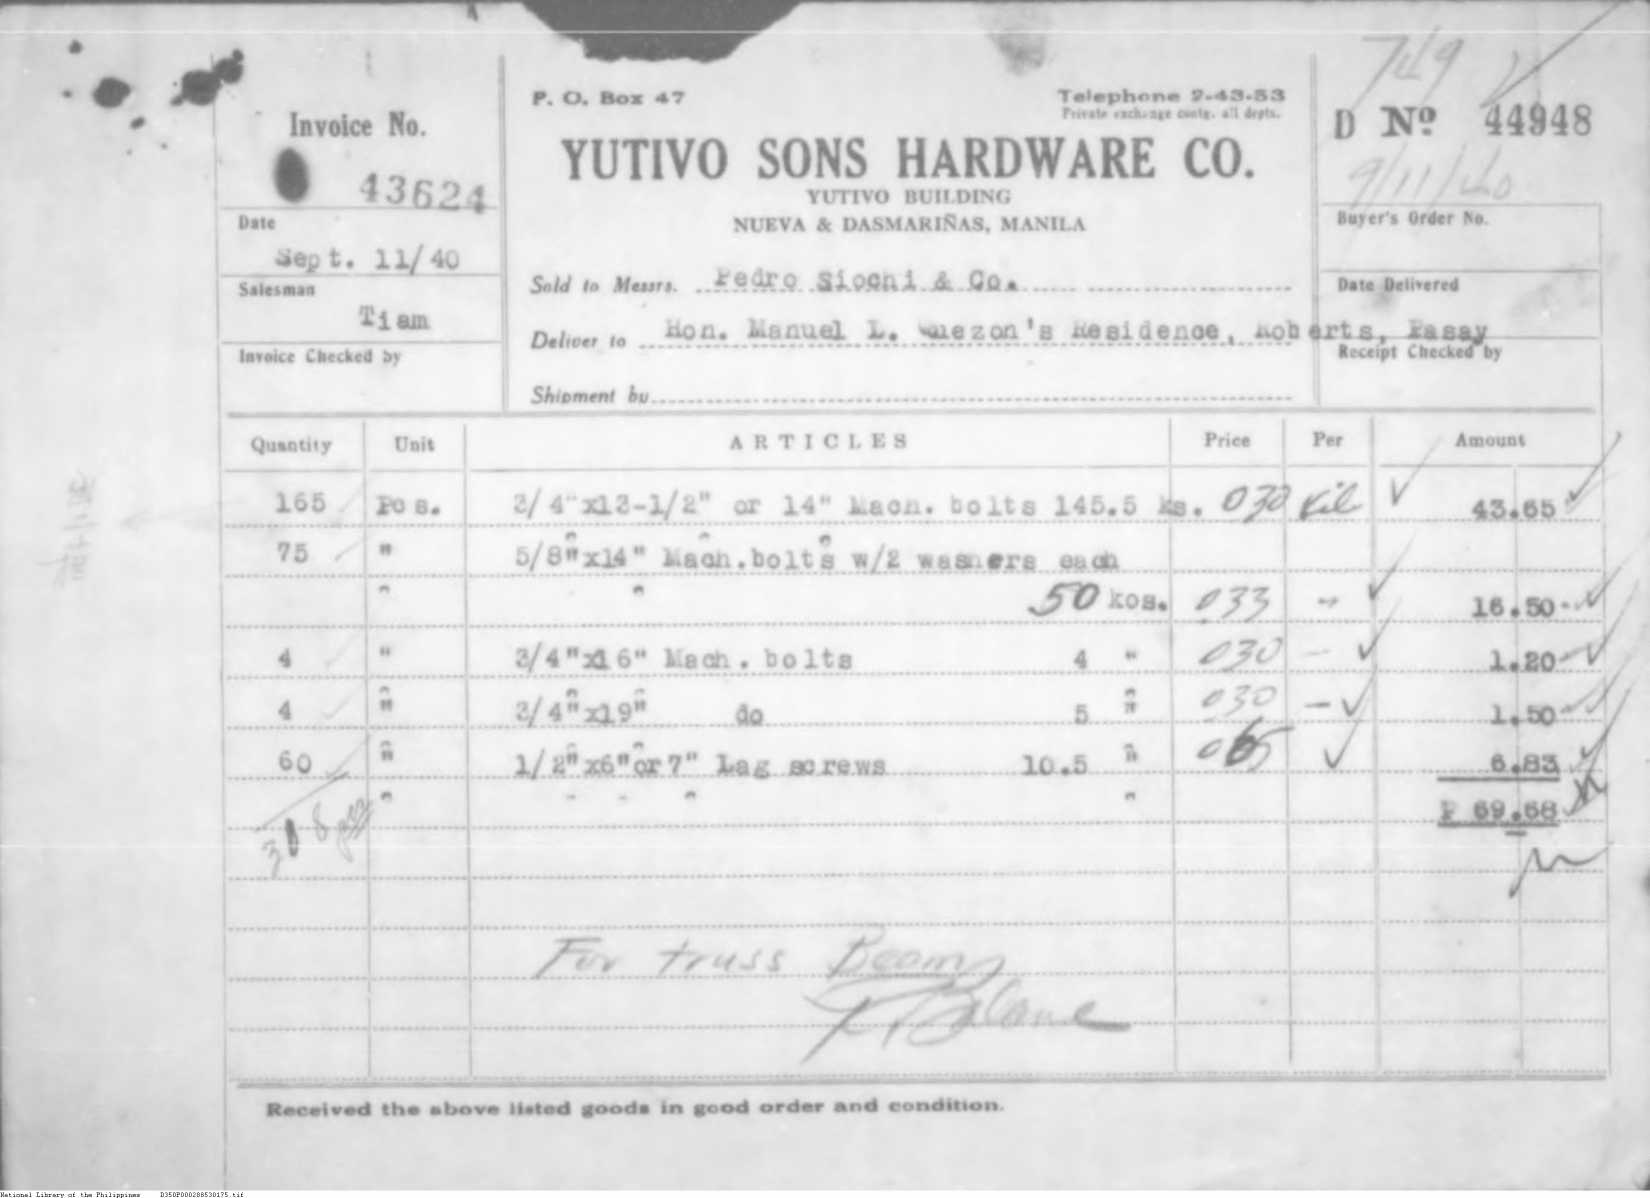 749
P. O. Box 47
Telephone 2-43-53
Private exchange contg. all depts.
Invoice No.
43624
D No 44948
YUTIVO SONS HARDWARE CO.
YUTIVO BUILDING
NUEVA & DASMARIÑAS, MANILA
9/11/40
Date
Sept. 11/40
Buyer's Order No.
Salesman
Tiam
Sold to Messrs. Pedro Siochi & Co.
Date Delivered
Deliver to Hon. Manuel L. Quezon's Residence, Roberts, Pasay
Invoice Checked by
Receipt Checked by
Shipment by
Quantity Unit ARTICLES Price Per Amount
165 Pcs. 3/4"x13-1/2" or 14" Mach. bolts 145.5 ks. 030 Kil 43.65
75 " 5/8"x14" Mach.bolts w/2 washers each
50 kos. 033 " 16.50
4 " 3/4"x16" Mach. bolts 4 " 030 - 1.20
4 " 3/4"x19" do 5 " 030 - 1.50
60 " 1/2"x6"or7" Lag screws 10.5 " 065 6.83
308 pcs
P 69.68
For truss Beams
Received the above listed goods in good order and condition.
National Library of the Philippines D350P000288530175.tif